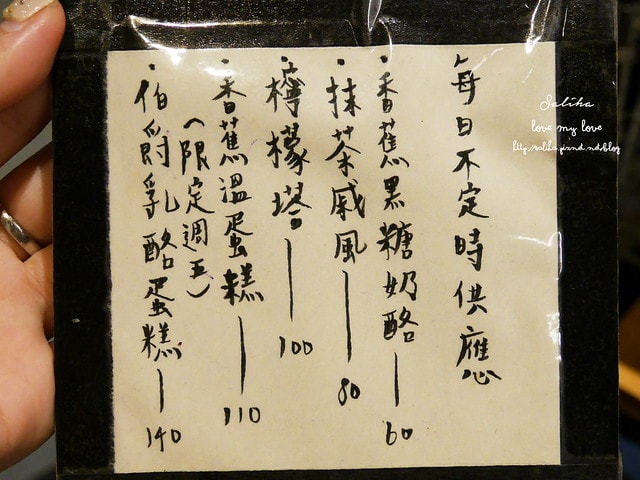 每日不定時供應
·香蕉黑糖奶酪—60
·抹茶戚風—80
·檸檬塔—100
·香蕉溫蛋糕—110
(限定週五)
·伯爵乳酪蛋糕—140
Saliha
love my love
http://saliha.pixnet.net/blog